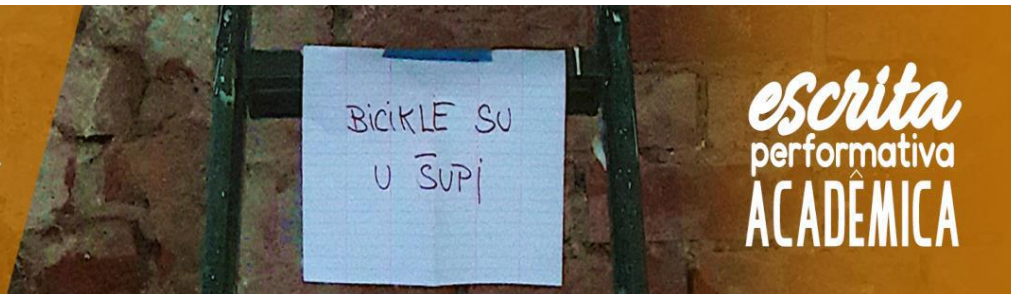 BICIKLE SU
U ŠUPI
escrita
performativa
ACADÊMICA